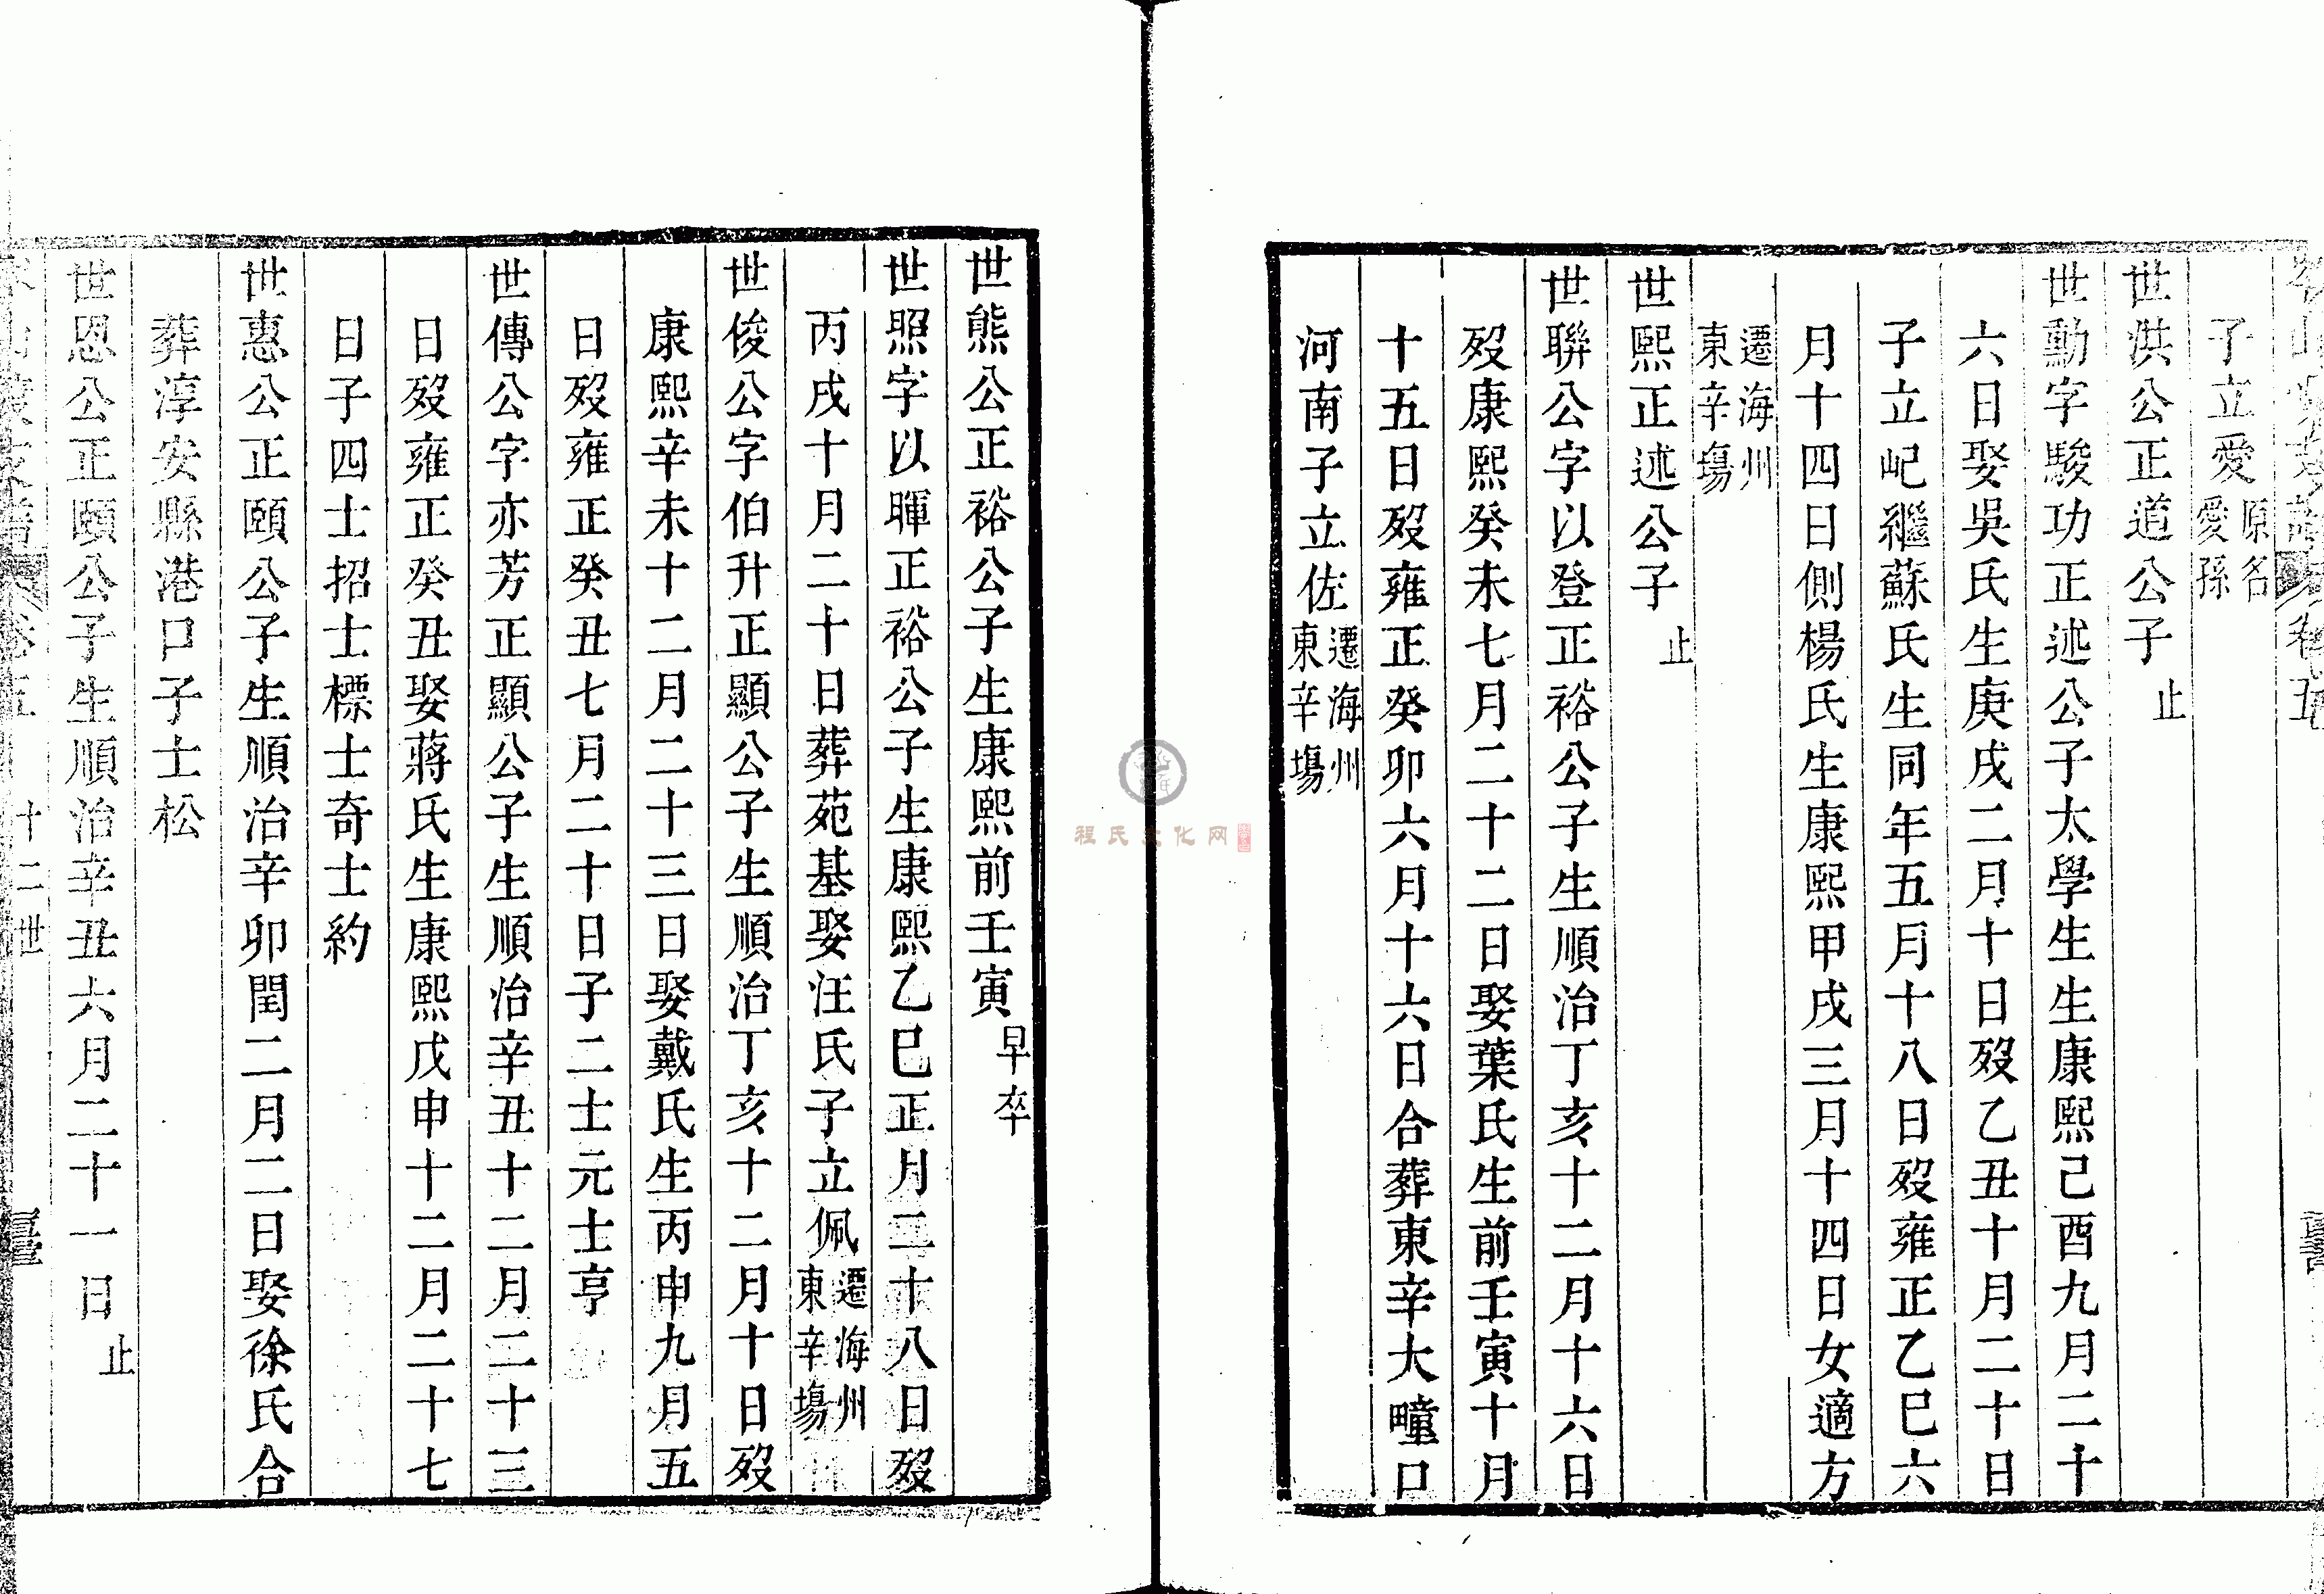 子立愛原名愛孫
世洪公正道公子止
世勳字駿功正述公子太學生生康熙己酉九月二十
六日娶吳氏生庚戌二月十日歿乙丑十月二十日
子立屺繼蘇氏生同年五月十八日歿雍正乙巳六
月十四日側楊氏生康熙甲戌三月十四日女適方
遷海州東辛塲
世熙正述公子止
世聯公字以登正裕公子生順治丁亥十二月十六日
歿康熙癸未七月二十二日娶葉氏生前壬寅十月
十五日歿雍正癸卯六月十六日合葬東辛大疃口
河南子立佐遷海州東辛塲
世熊公正裕公子生康熙前壬寅早卒
世照字以暉正裕公子生康熙乙巳正月二十八日歿
丙戌十月二十日葬苑基娶汪氏子立佩遷海州東辛塲
世俊公字伯升正顯公子生順治丁亥十二月十日歿
康熙辛未十二月二十三日娶戴氏生丙申九月五
日歿雍正癸丑七月二十日子二士元士亨
世傳公字亦芳正顯公子生順治辛丑十二月二十三
日歿雍正癸丑娶蔣氏生康熙戊申十二月二十七
日子四士招士標士奇士約
世惠公正頤公子生順治辛卯閏二月二日娶徐氏合
葬淳安縣港口子士松
世恩公正頤公子生順治辛丑六月二十一日止
十二世
程氏文化网